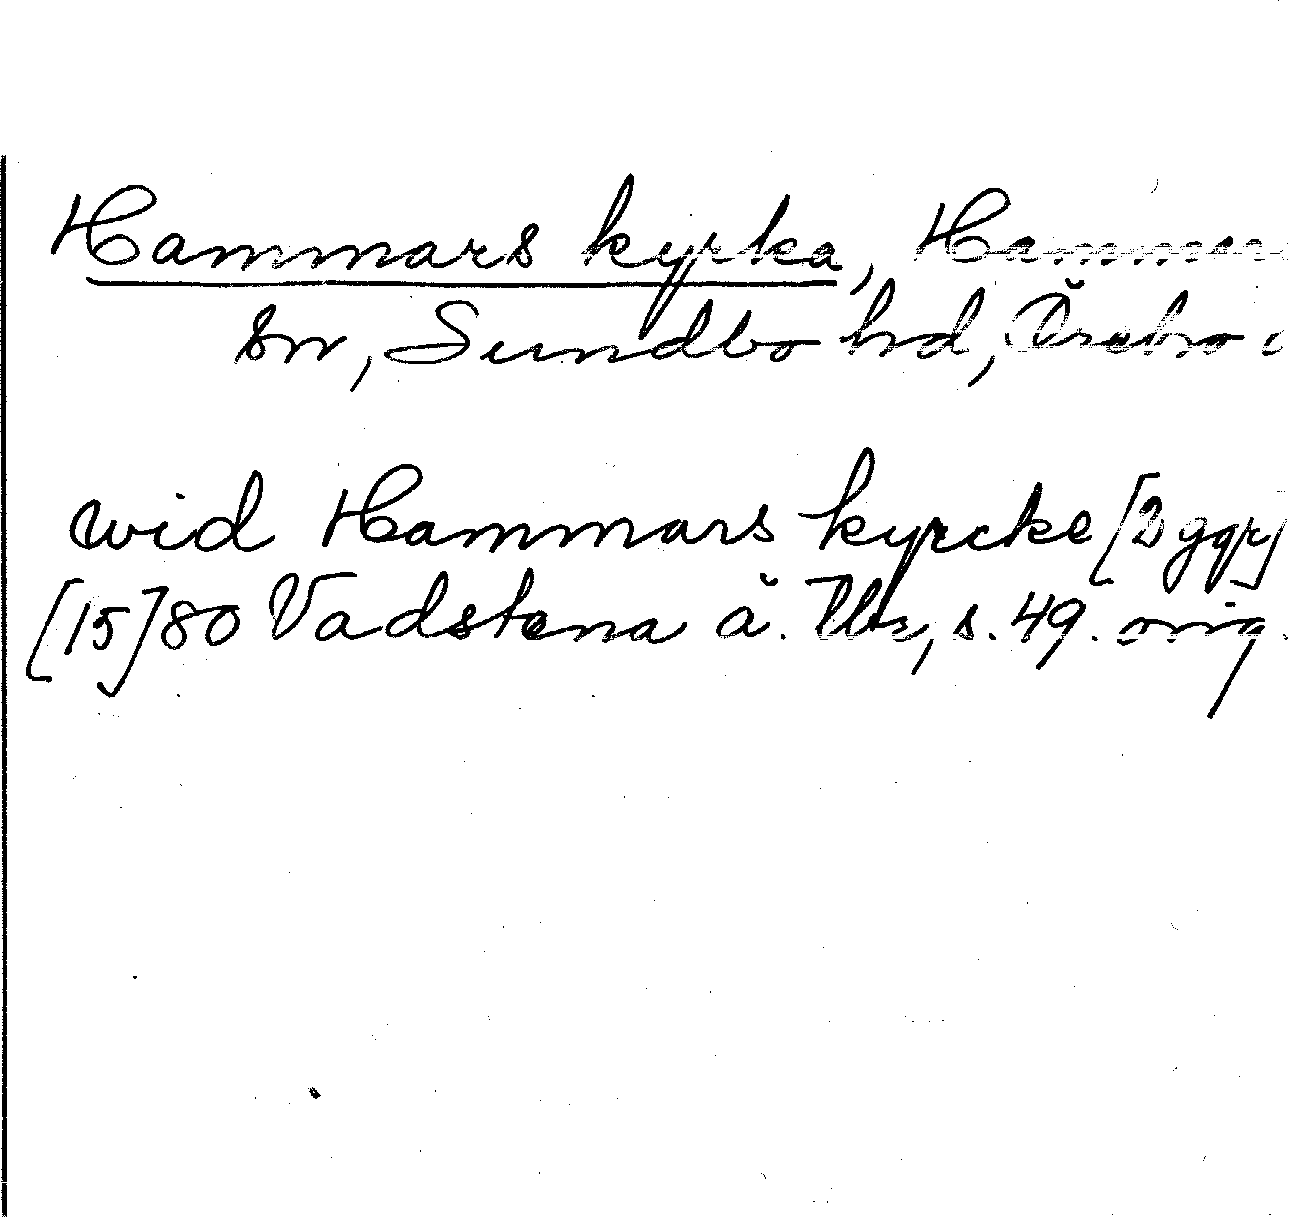 Hammars kyrka, Hammars
sn, Sundbo hd, Örebro l
wid Hammars kyrcke [2 ggr]
[15]80 Vadstena ä. Tbr, s. 49. orig.